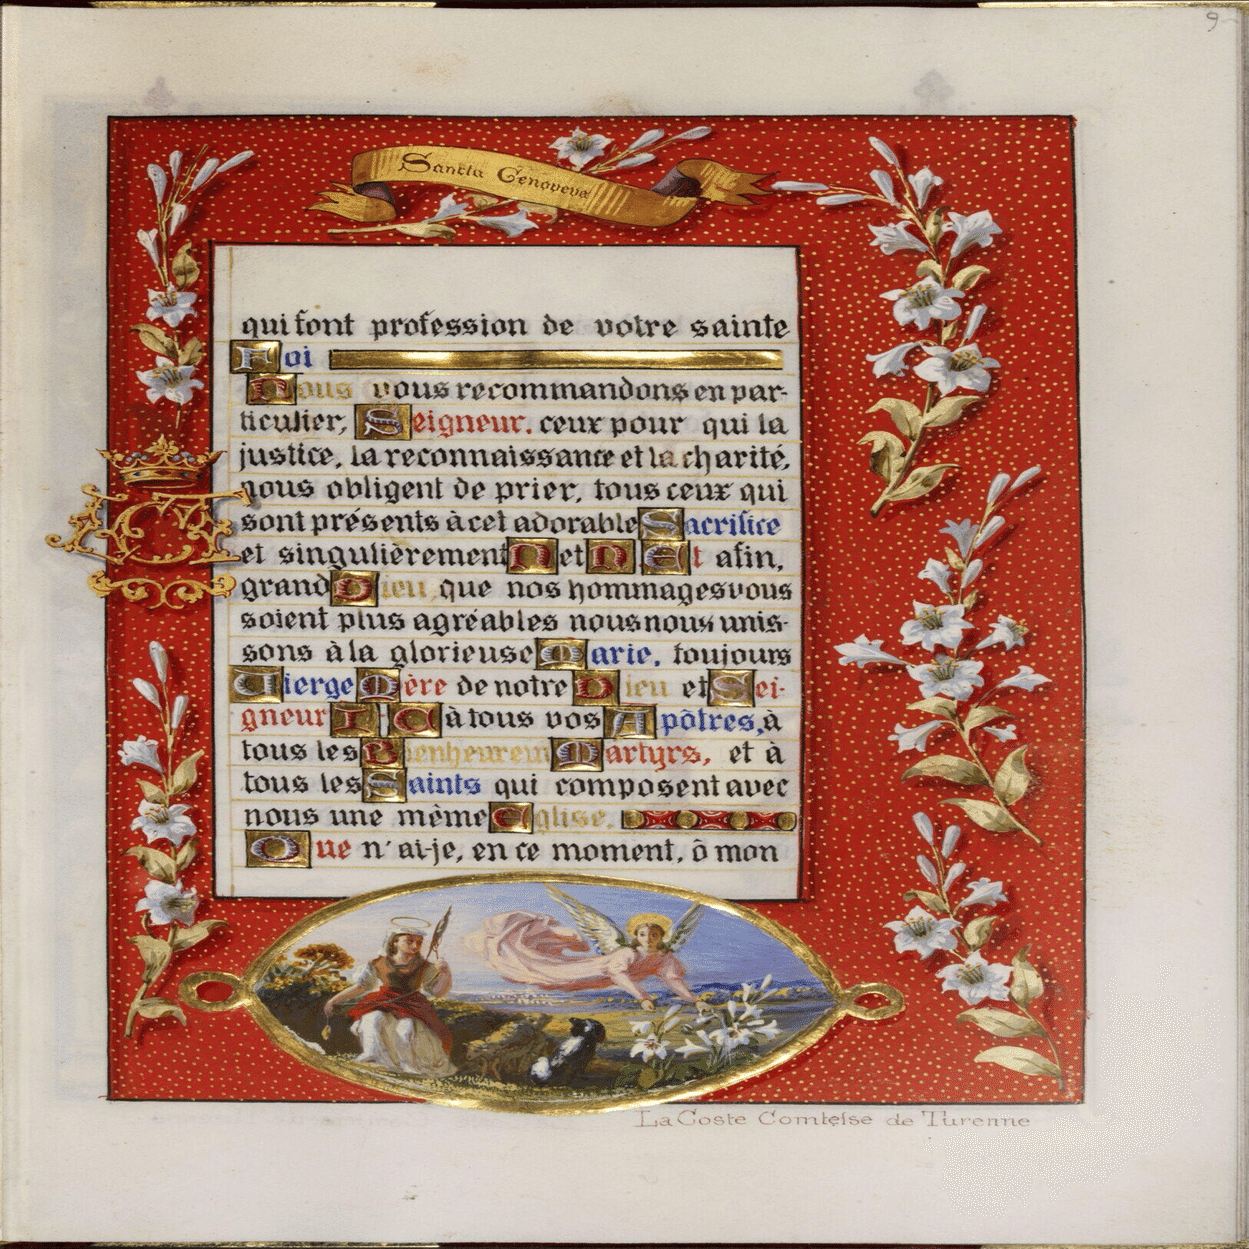 9
Sancta Genoveva
qui font profession de votre sainte
Foi
Nous vous recommandons en par-
ticulier, Seigneur, ceux pour qui la
justice, la reconnaissance et la charité,
nous obligent de prier, tous ceux qui
sont présents à cet adorable Sacrifice
et singulièrement N et N Et afin,
grand Dieu, que nos hommages vous
soient plus agréables nous nous unis-
sons à la glorieuse Marie, toujours
Vierge Mère de notre Dieu et Sei-
gneur I C à tous vos Apôtres, à
tous les Bienheureux Martyrs, et à
tous les Saints qui composent avec
nous une même Eglise.
Que n'ai-je, en ce moment, ô mon
La Coste Comtesse de Turenne